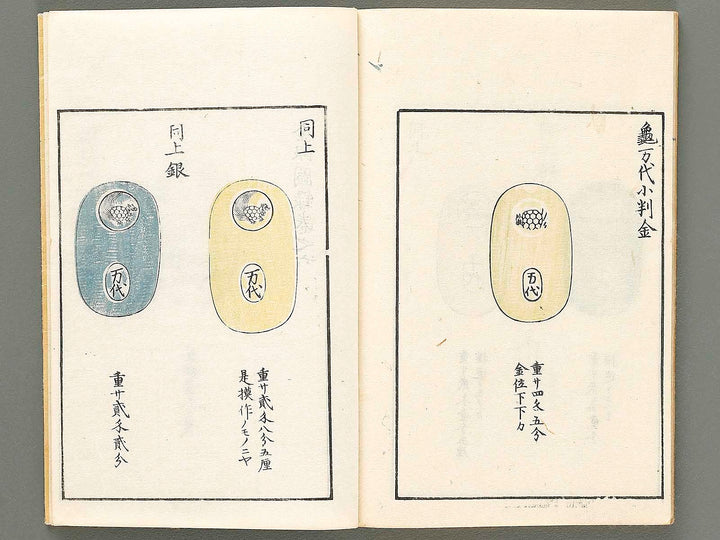 龜万代小判金
万代
重廾四匁五分
金位下下カ
同上
万代
重廾貳匁八分五厘
是摸作ノモノニヤ
同上銀
万代
重廾貳匁貳分